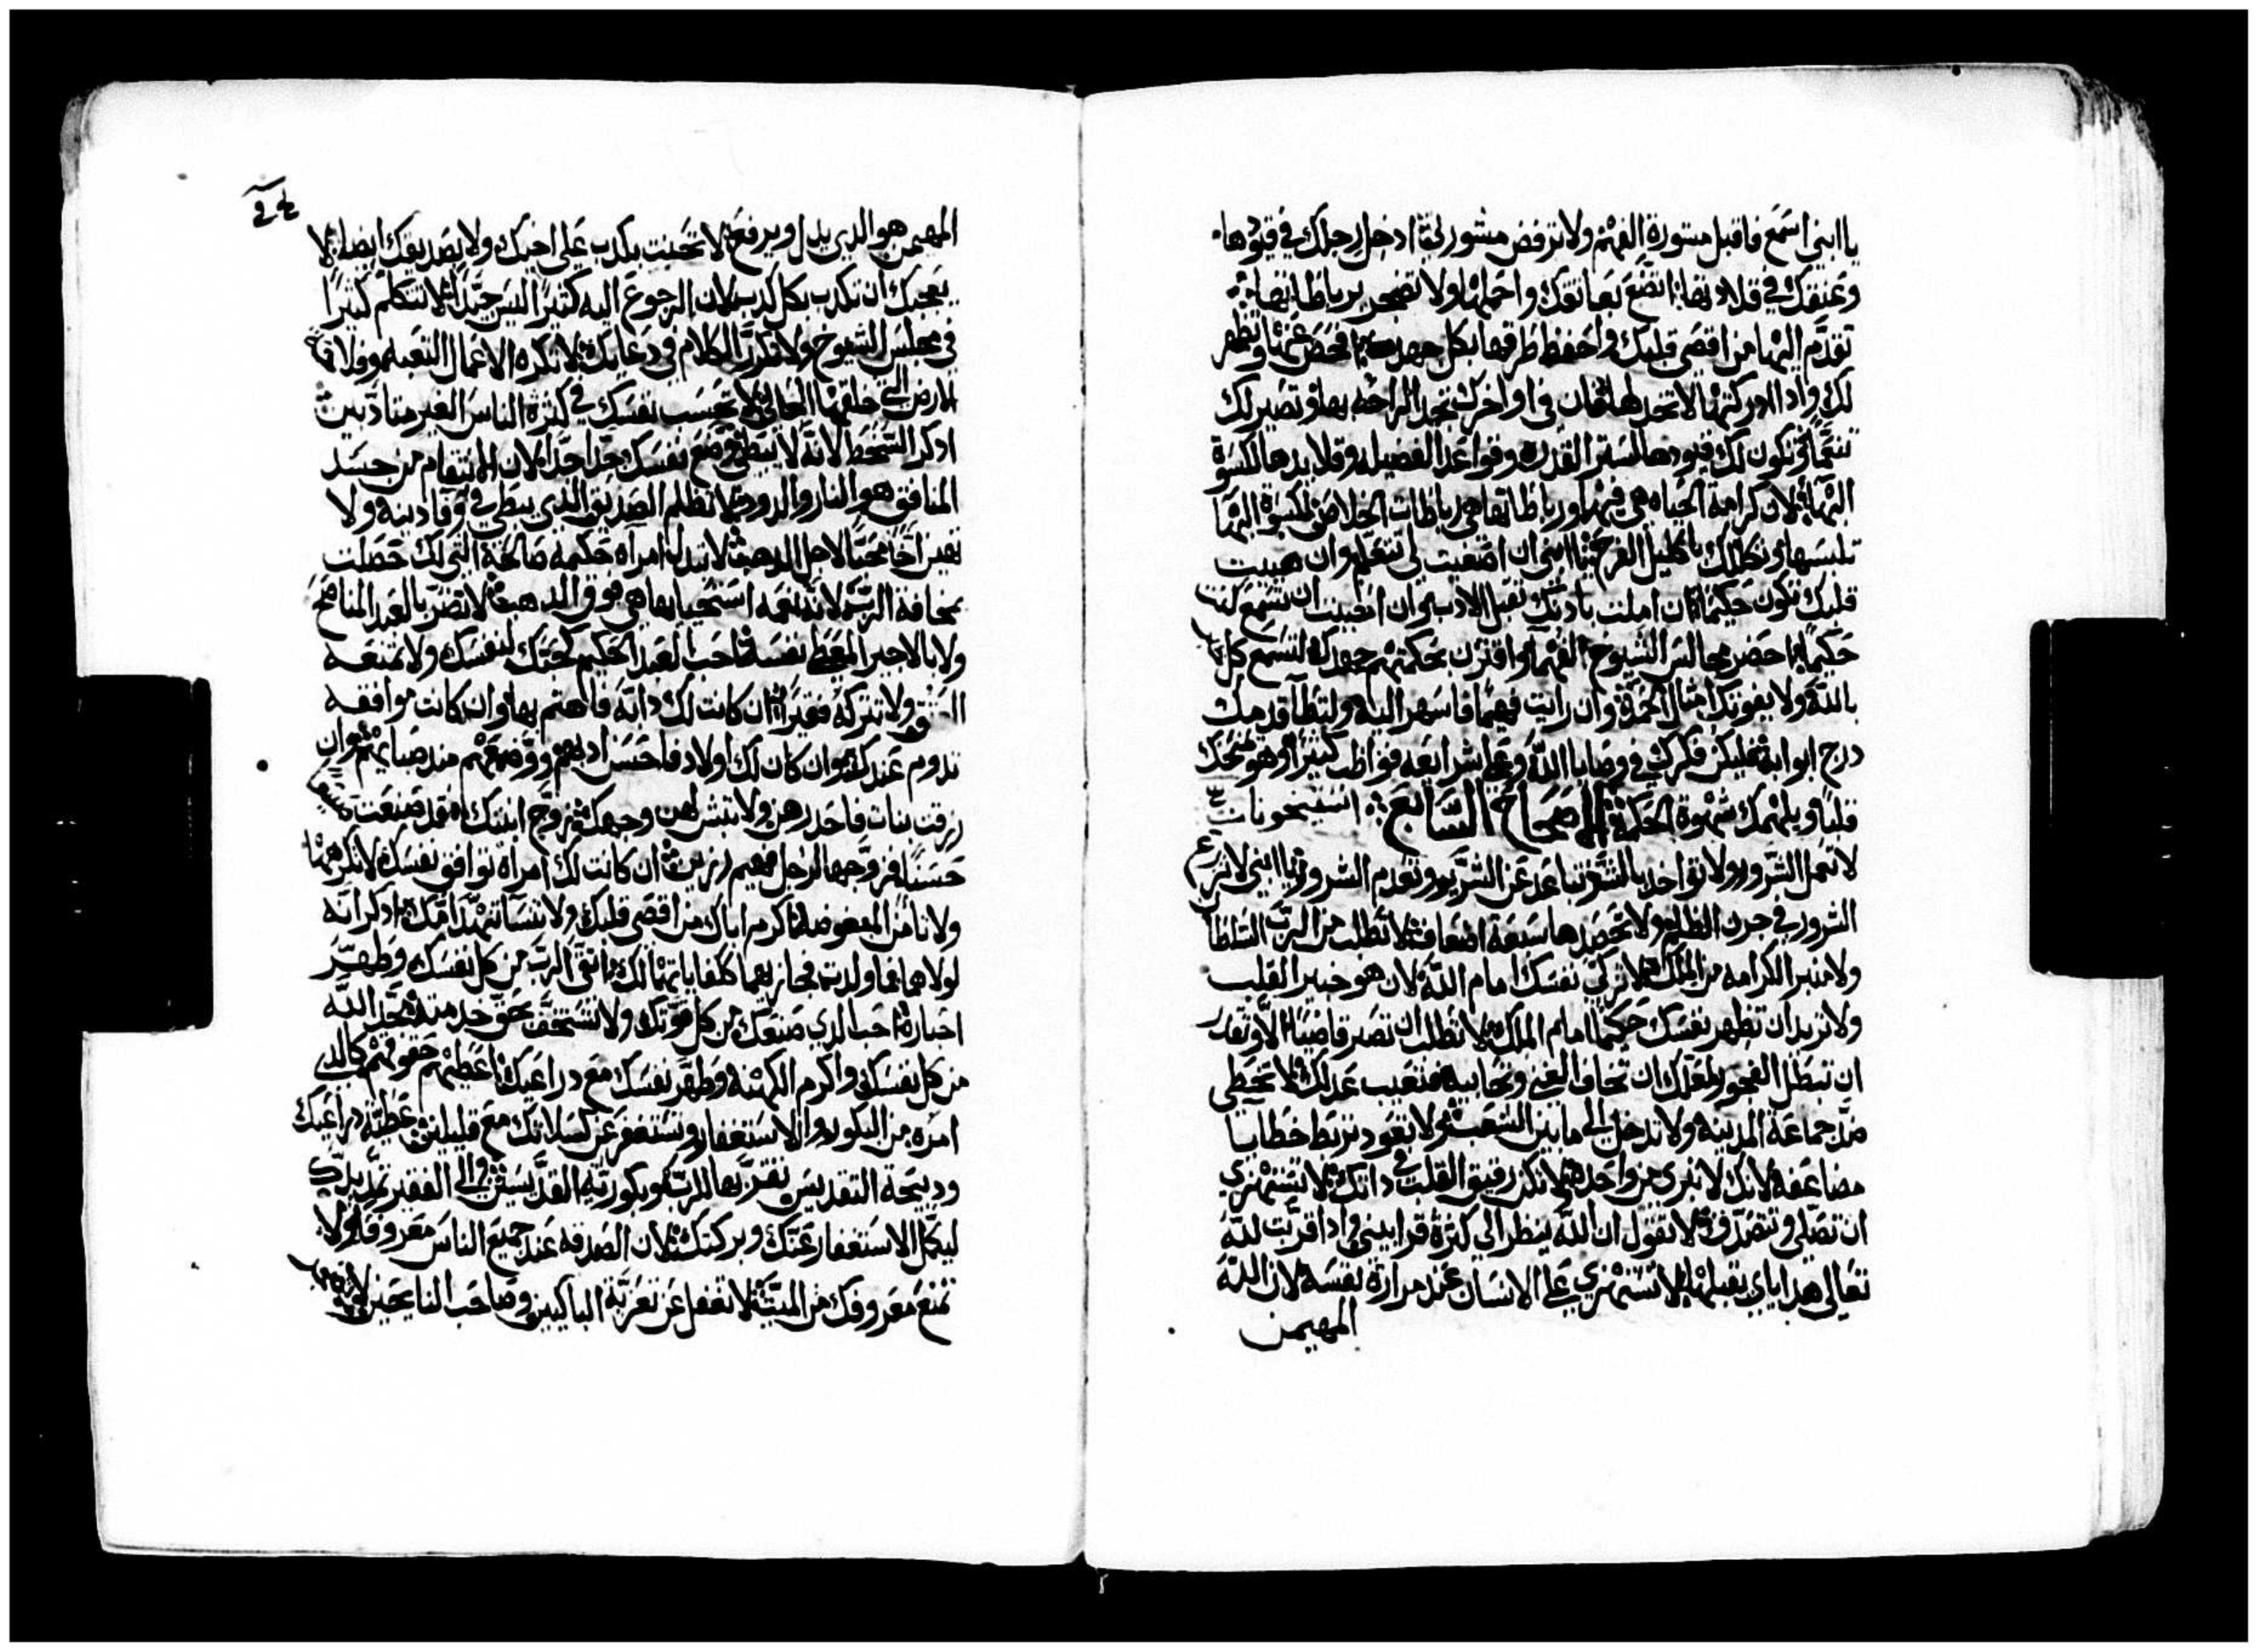 يا ابني اسمع فاقبل مشورة الفهم ولا ترفض مشورتي ادخل رجلك في قيودها
وعنقك في قلادتها اتضع بعاتقك واحملها ولا تضجر برباطاتها
تقدم اليها من اقصى قلبك واحفظ طرقها بكل جهدك افحص عنها وتظهر
لك واذا ادركتها لا تتخلاها فان في اواخرك تجد الراحه بها وتصير لك
تنعما وتكون لك قيودها لستر القدره وقواعد الفضيله وقلايدها لكسوة
البها لان كرامة الحياه هي فيها ورباطاتها هي رباطات الخلاص لكسوة البها
تلبسها وتكللك باكليل الفرح يا ابني ان اصغيت لي تتعلم وان هييت
قلبك تكون حكيما ان املت باذنك تقبل الادب وان احببت ان تسمع كنت
حكيما احضر مجالس الشيوخ الفهما واقترن بحكمتهم جهدك لتسمع كل
بالله ولا يفوتك امثال الحمد وان رايت فهيما فاسهر اليه ولتطا قدميك
درج ابوابه فليكن فكرك في وصايا الله وعلى شرايعه فواظب كثيرا وهو يمنحك
قلبا ويلهمك شهوة الحكمة الاصحاح السابع
لا تعمل الشرور ولا تواخذ بالشر تباعد عن الشرير وتعدم الشرور يا ابني لا تزرع
الشرور في حرث الظلم ولا تحصدها سبعة اضعاف لا تطلب من الرب السلطا
ولا منبر الكرامه من الملك لا تزكي نفسك امام الله لان هو خبير القلب
ولا تريد ان تظهر نفسك حكيما امام الملك لا تطلب ان تصير قاضيا الا وتقدر
ان تبطل الفجور لعلك ان تخاف الغني وتحابيه فتعيب عدلك لا تخطي
ضد جماعة المدينه ولا تدخل الى ما بين الشعب ولا تعود تربط خطايا
مضاعفه لانك لا تبرى من واحدها لا تكن رفيق القلب في ذاتك لا تستهزي
ان تصلي وتتصدق لا تقول ان الله ينظر الى كثرة قرابيني واذا قربت لله
تعالى هداياي يقبلها لا تستهزي على الانسان عند مرارة نفسه لان الله
المهيمن
المهيمن هو الذي يذل ويرفع لا تحنث بكذب على اخيك ولا بصديقك ايضا لا
يعجبك ان تكذب بكل كذب لان الرجوع اليه كثيرا ليس جيدا لا تتكلم كثيرا
في مجلس الشيوخ ولا تكرر الكلام في دعايك لا تكره الاعمال التعبه وفلاحة
الارض التي خلقها العالي لا تحسب نفسك في كثرة الناس الغير متادبين
اذكر السخط لانه لا يبطي وضع نفسك جدا جدا لان الانتقام من جسد
المنافق هو النار والدود لا تظلم الصديق الذي يبطي في وفا دينه ولا
تعير اخا محبا لاجل الذهب لا تبدل امراه حكيمه صالحة التي لك حصلت
بمخافة الرب لان نعمه استحيايها هي فوق الذهب لا تضر بالعبد المناصح
ولا بالاجير المعطي نفسه احب العبد الحكيم كحبك لنفسك ولا تمنعه
العتق ولا تتركه فقيرا ان كانت لك دابه فاهتم بها وان كانت موافقه
تدوم عندك وان كان لك اولاد فاحسن ادبهم ووضعهم منذ صبايهم وان
رزقت بنات فاحذرهن ولا تبش لهن وجهك زوج ابنتك فقد صنعت صنيعا
حسنا فزوجها لرجل فهيم رزين ان كانت لك امراه توافق نفسك لا تكرهها
ولا تامن المبغوضه اكرم اباك من اقصى قلبك ولا تنسا تنهد امك اذكر انه
لولاهما فما ولدت فجازيهما كمكافاتهما لك اتقي الرب من كل نفسك وطهر
احباره احب الذي صنعك من كل قوتك ولا تستخف بحق خدمته مجد الله
من كل نفسك واكرم الكهنه وطهر نفسك مع ذراعيك اعطيهم حقوقهم كالذي
امره من البكور والاستغفار وتستغفر عن كسلاتك مع قليلين عطية ذراعيك
وذبيحة التقديس تقربها للرب وبكورية القديسين والى الفقير تمد يدك
ليكمل الاستغفار عنك وبركتك لان الصدقه عند جميع الناس معروفه ولا
تمنع معروفك من الميت لا تغفل عن تعزية الباكيين وصاحب النايحين